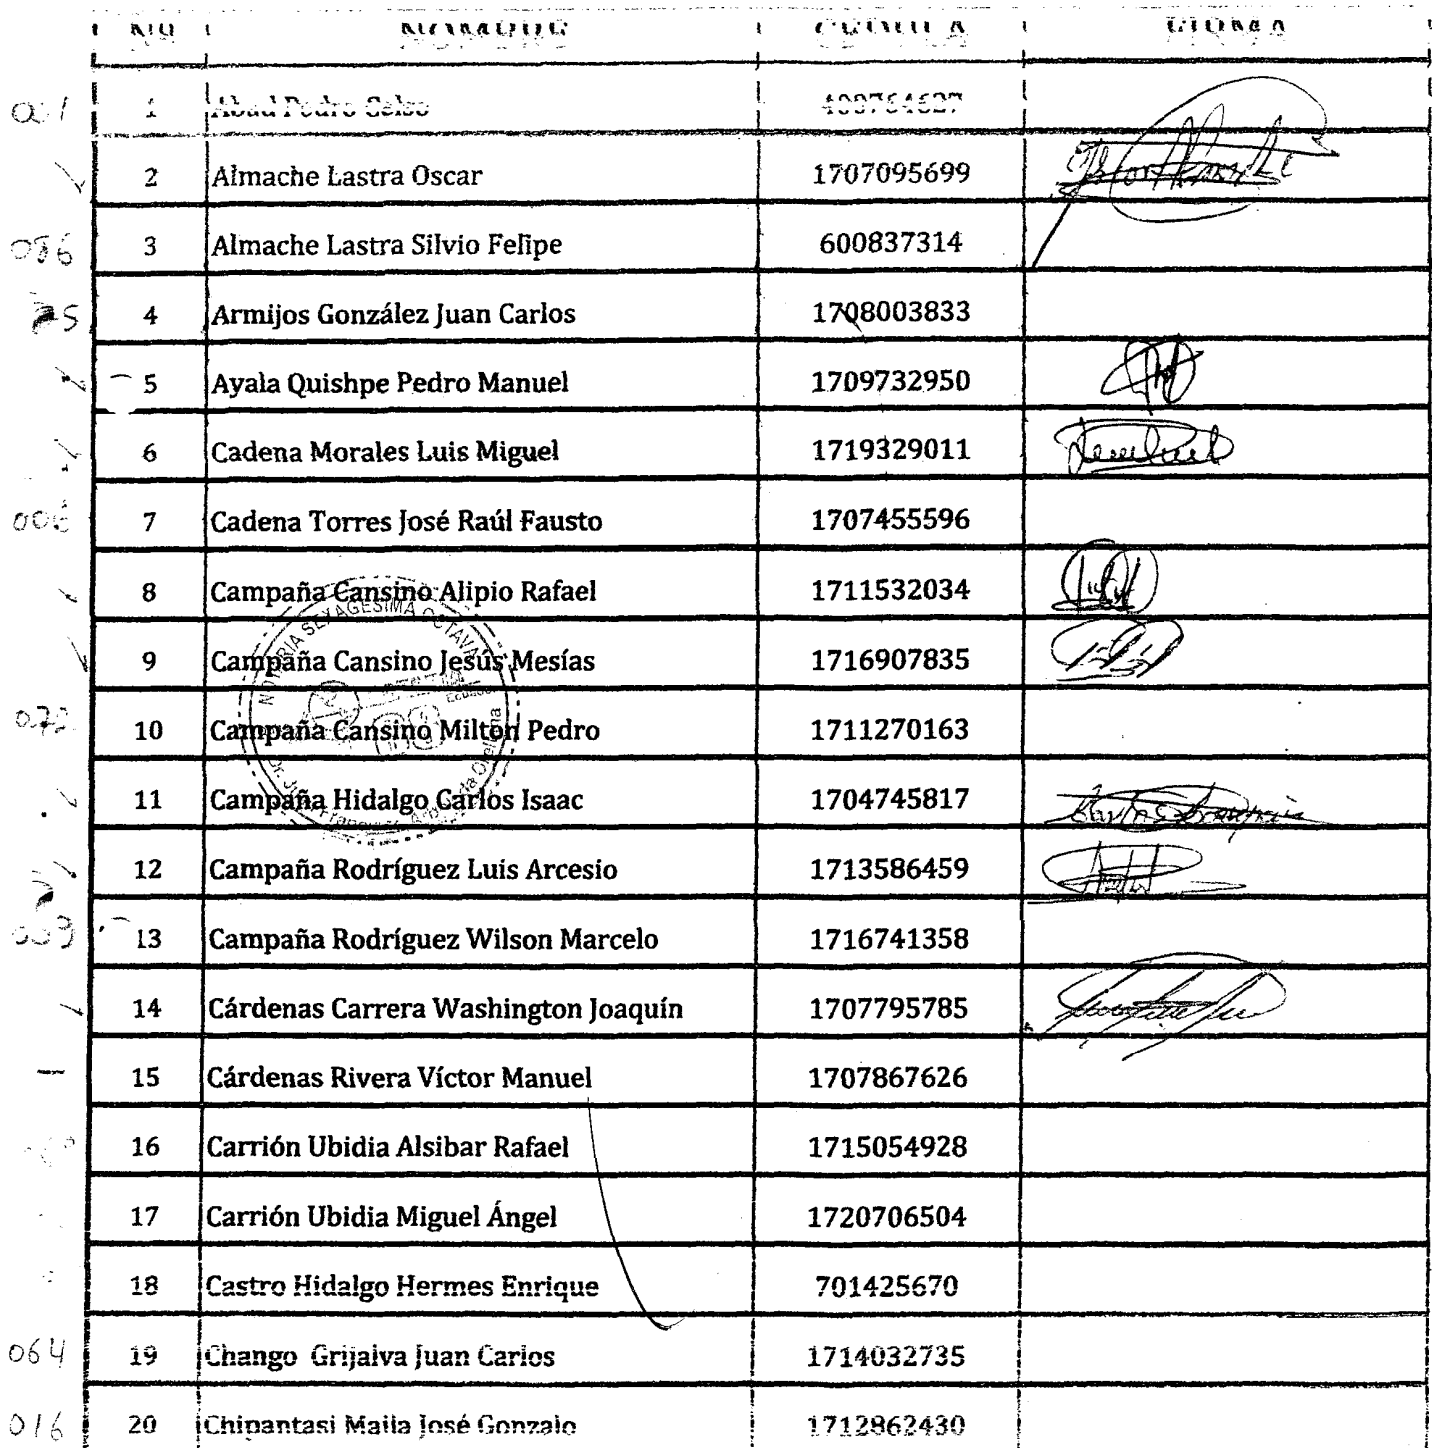 Nº NOMBRE CEDULA FIRMA
001 1 Abad Pedro Celso 400764627
2 Almache Lastra Oscar 1707095699
086 3 Almache Lastra Silvio Felipe 600837314
4 Armijos González Juan Carlos 1708003833
5 Ayala Quishpe Pedro Manuel 1709732950
6 Cadena Morales Luis Miguel 1719329011
7 Cadena Torres José Raúl Fausto 1707455596
8 Campaña Cansino Alipio Rafael 1711532034
NOTARIA SEXAGESIMA OCTAVA
9 Campaña Cansino Jesús Mesías 1716907835
072 10 Campaña Cansino Milton Pedro 1711270163
11 Campaña Hidalgo Carlos Isaac 1704745817
12 Campaña Rodríguez Luis Arcesio 1713586459
13 Campaña Rodríguez Wilson Marcelo 1716741358
14 Cárdenas Carrera Washington Joaquín 1707795785
15 Cárdenas Rivera Víctor Manuel 1707867626
16 Carrión Ubidia Alsibar Rafael 1715054928
17 Carrión Ubidia Miguel Ángel 1720706504
18 Castro Hidalgo Hermes Enrique 701425670
064 19 Chango Grijalva Juan Carlos 1714032735
016 20 Chipantasi Maila José Gonzalo 1712862430